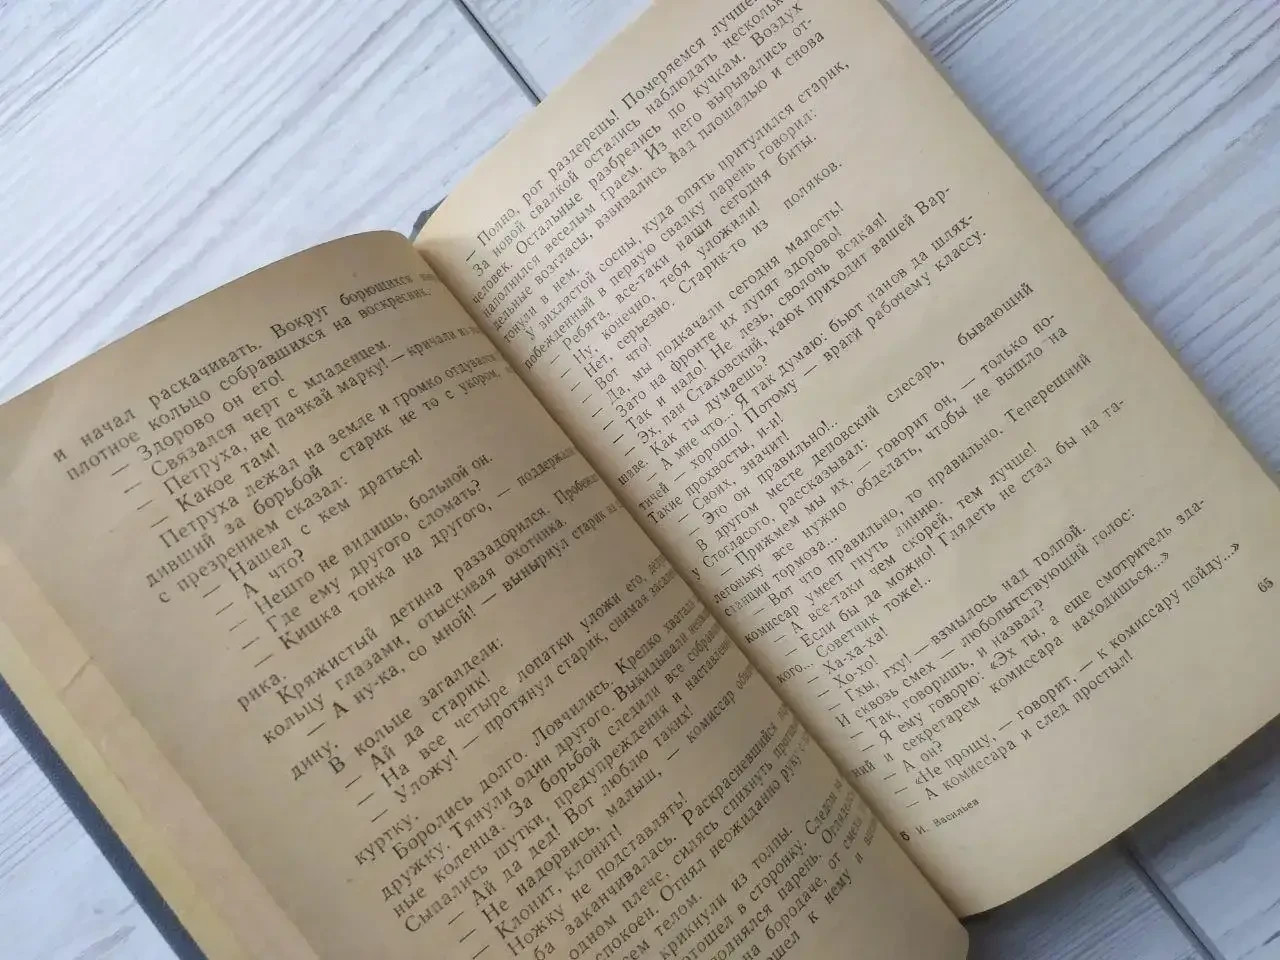 и начал раскачивать. Вокруг борющихся
плотное кольцо собравшихся на воскресник.
— Здорово он его!
— Связался черт с младенцем.
— Петруха, не пачкай марку! — кричали
— Какое там!
Петруха лежал на земле и громко отдувался
дивший за борьбой старик не то с укором,
с презрением сказал:
— Нашел с кем драться!
— А что?
— Нешто не видишь, больной он.
— Где ему другого сломать?
— Кишка тонка на другого, — поддержал
рика.
Кряжистый детина раззадорился.
кольцу глазами, отыскивая охотника.
— А ну-ка, со мной! — вынырнул старик
дину.
В кольце загалдели:
— Ай да старик!
— На все четыре лопатки уложи его,
— Уложу! — протянул старик, снимая
куртку.
Боролись долго. Ловчились. Крепко хватали
дружку. Тянули один другого. Выкидывали
ные коленца. За борьбой следили все
Сыпались шутки, предупреждения и
— Ай да дед! Вот люблю таких!
— Не надорвись, малыш, — комиссар
— Клонит, клонит!
— Ножку не подставлять!
ба заканчивалась. Раскрасневшийся
одном плече, силясь спихнуть
спокоен. Отнял неожиданно руку
всем телом.
крикнули из толпы. Следом
отошел в сторонку.
поднялся парень.
на бородаче, от смеха
к нему
— Полно, рот раздерешь! Померяемся лучше
За новой свалкой остались наблюдать несколько
человек. Остальные разбрелись по кучкам. Воздух
наполнился веселым граем. Из него вырывались от-
дельные возгласы, взвивались над площадью и снова
тонули в нем.
У вихлястой сосны, куда опять притулился старик,
побежденный в первую свалку парень говорил:
— Ребята, все-таки наши сегодня биты.
— Ну, конечно, тебя уложили!
— Нет, серьезно. Старик-то из поляков.
— Вот что!
— Да, мы подкачали сегодня малость!
— Зато на фронте их лупят здорово!
— Так и надо! Не лезь, сволочь всякая!
— Эх, пан Стаховский, каюк приходит вашей Вар-
шаве. Как ты думаешь?
— А мне что... Я так думаю: бьют панов да шлях-
тичей — хорошо! Потому — враги рабочему классу.
Такие прохвосты, и-и!
— Своих, значит!
— Это он правильно!..
В другом месте деповский слесарь, бывающий
у Стогласого, рассказывал:
— Прижмем мы их, — говорит он, — только по-
легоньку все нужно обделать, чтобы не вышло на
станции тормоза...
— Вот что правильно, то правильно. Теперешний
комиссар умеет гнуть линию.
— А все-таки чем скорей, тем лучше!
— Если бы да можно! Глядеть не стал бы на та-
кого... Советчик тоже!..
— Ха-ха-ха!
— Хо-хо!
— Гхы, гху! — взмылось над толпой.
И сквозь смех — любопытствующий голос:
— Так, говоришь, и назвал?
— Я ему говорю: «Эх ты, а еще смотритель зда-
ний и секретарем комиссара находишься...»
— А он?
— «Не прощу, — говорит, — к комиссару пойду...»
— А комиссара и след простыл!
5 И. Васильев
65